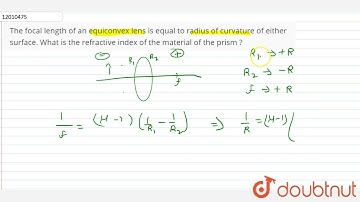 12010475
The focal length of an equiconvex lens is equal to radius of curvature of either
surface. What is the refractive index of the material of the prism ?
⊖ R₁ R₂ ⊕
f
R₁ → +R
R₂ → -R
f → +R
1/f = (μ-1) (1/R₁ - 1/R₂) ⇒ 1/R = (μ-1) (
doubtnut